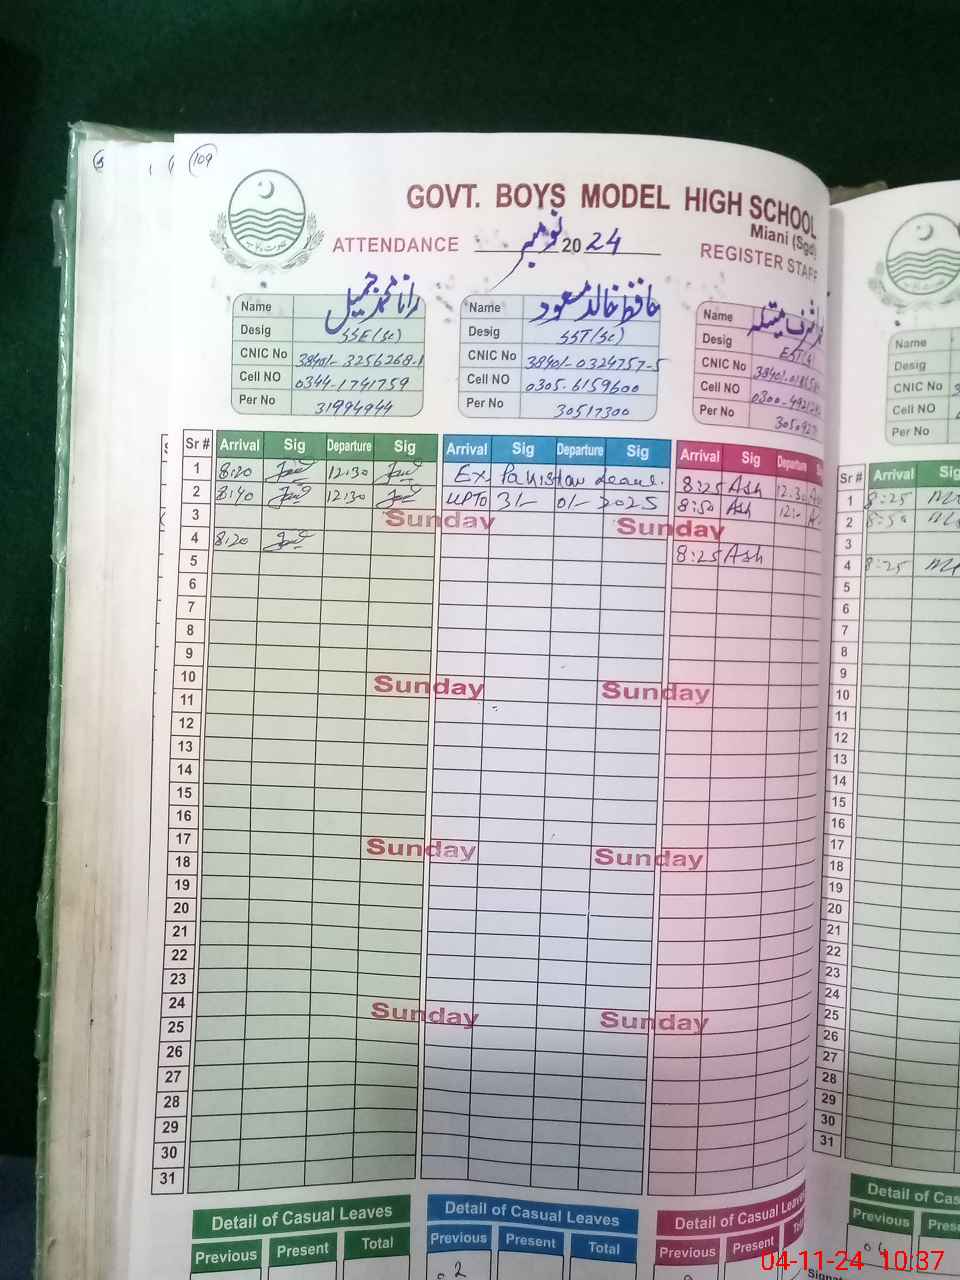 109
GOVT. BOYS MODEL HIGH SCHOOL
Miani (Sgd)
ATTENDANCE نومبر 2024 REGISTER STAFF
Name رانا محمد جمیل
Desig SSE(Sc)
CNIC No 38401-3256268-1
Cell NO 0344-1741759
Per No 31994944
Name حافظ خالد مسعود
Desig SST(Sc)
CNIC No 38401-0324757-5
Cell NO 0305-6159600
Per No 30517300
Name
Desig
CNIC No
Cell NO
Per No
Name
Desig
CNIC No
Cell NO
Per No
Sr # Arrival Sig Departure Sig Arrival Sig Departure Sig Arrival Sig Departure
1 8:20 12:30 Ex. Pakistan Leave. 8:25 Ash
2 8:40 12:30 UPTO 31- 01- 2025 8:50 Ash
3 Sunday Sunday
4 8:20 8:25 Ash
5
6
7
8
9
10 Sunday Sunday
11
12
13
14
15
16
17 Sunday Sunday
18
19
20
21
22
23
24 Sunday Sunday
25
26
27
28
29
30
31
Detail of Casual Leaves Detail of Casual Leaves Detail of Casual Leaves
Previous Present Total Previous Present Total Previous Present
Sr # Arrival
1 8:25
2 8:50
3
4 8:25
5
6
7
8
9
10
11
12
13
14
15
16
17
18
19
20
21
22
23
24
25
26
27
28
29
30
31
Detail of
Previous
04-11-24 10:37